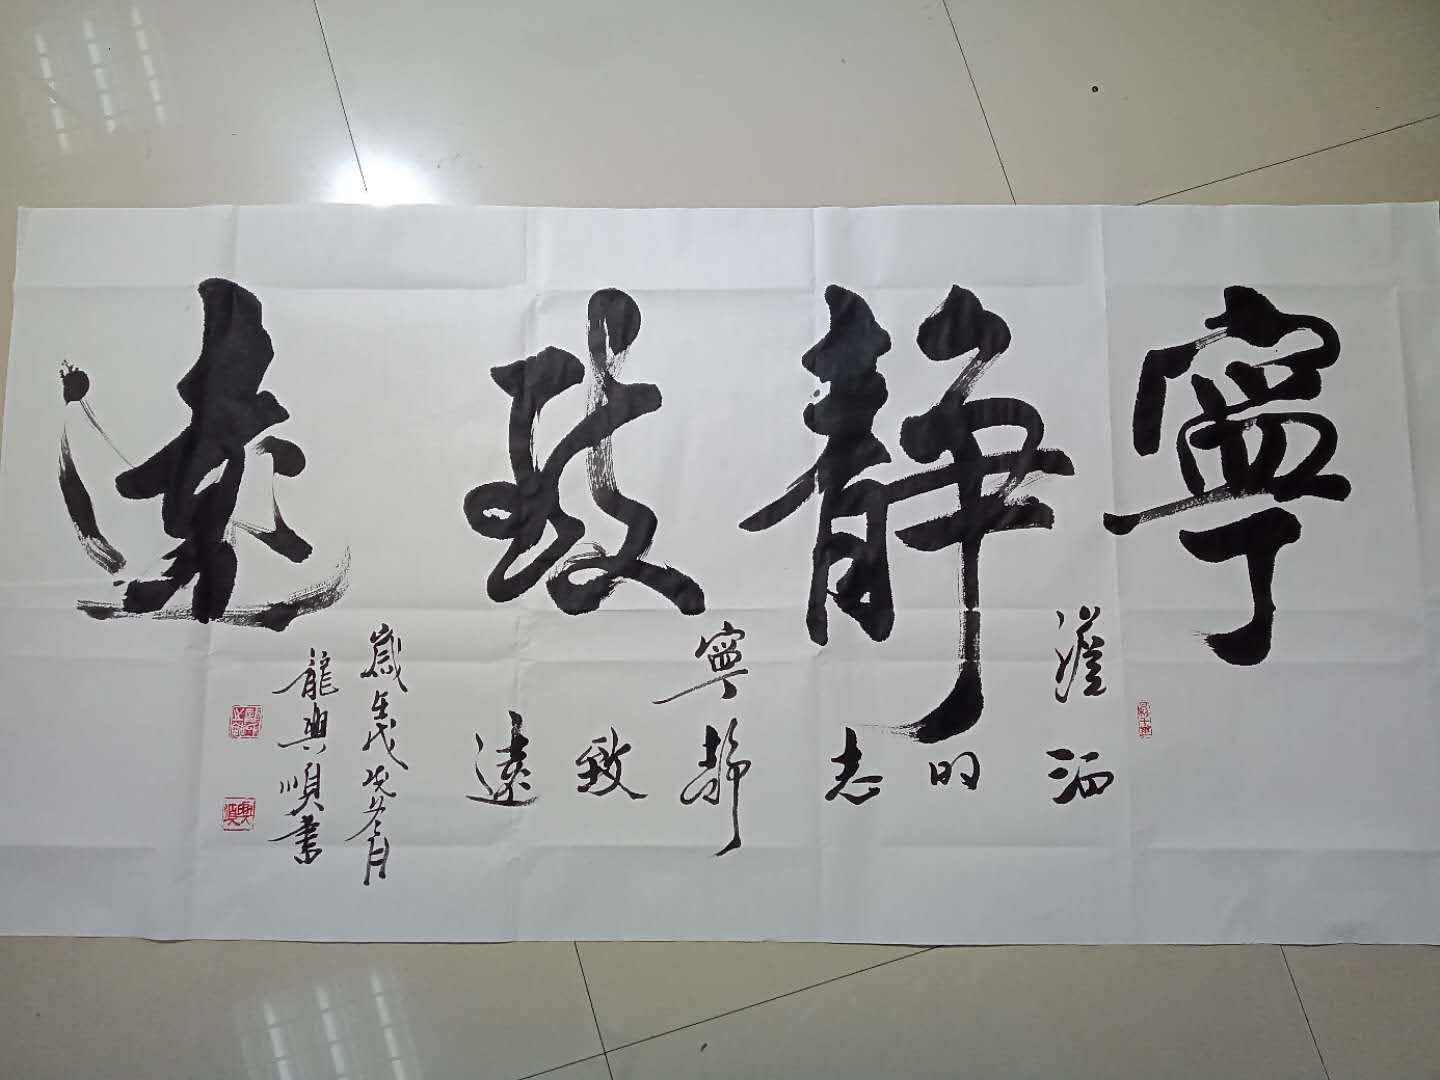 寧靜致遠
澹泊
明
志
寧靜
致
遠
歲在戊戌冬月
龍興順書